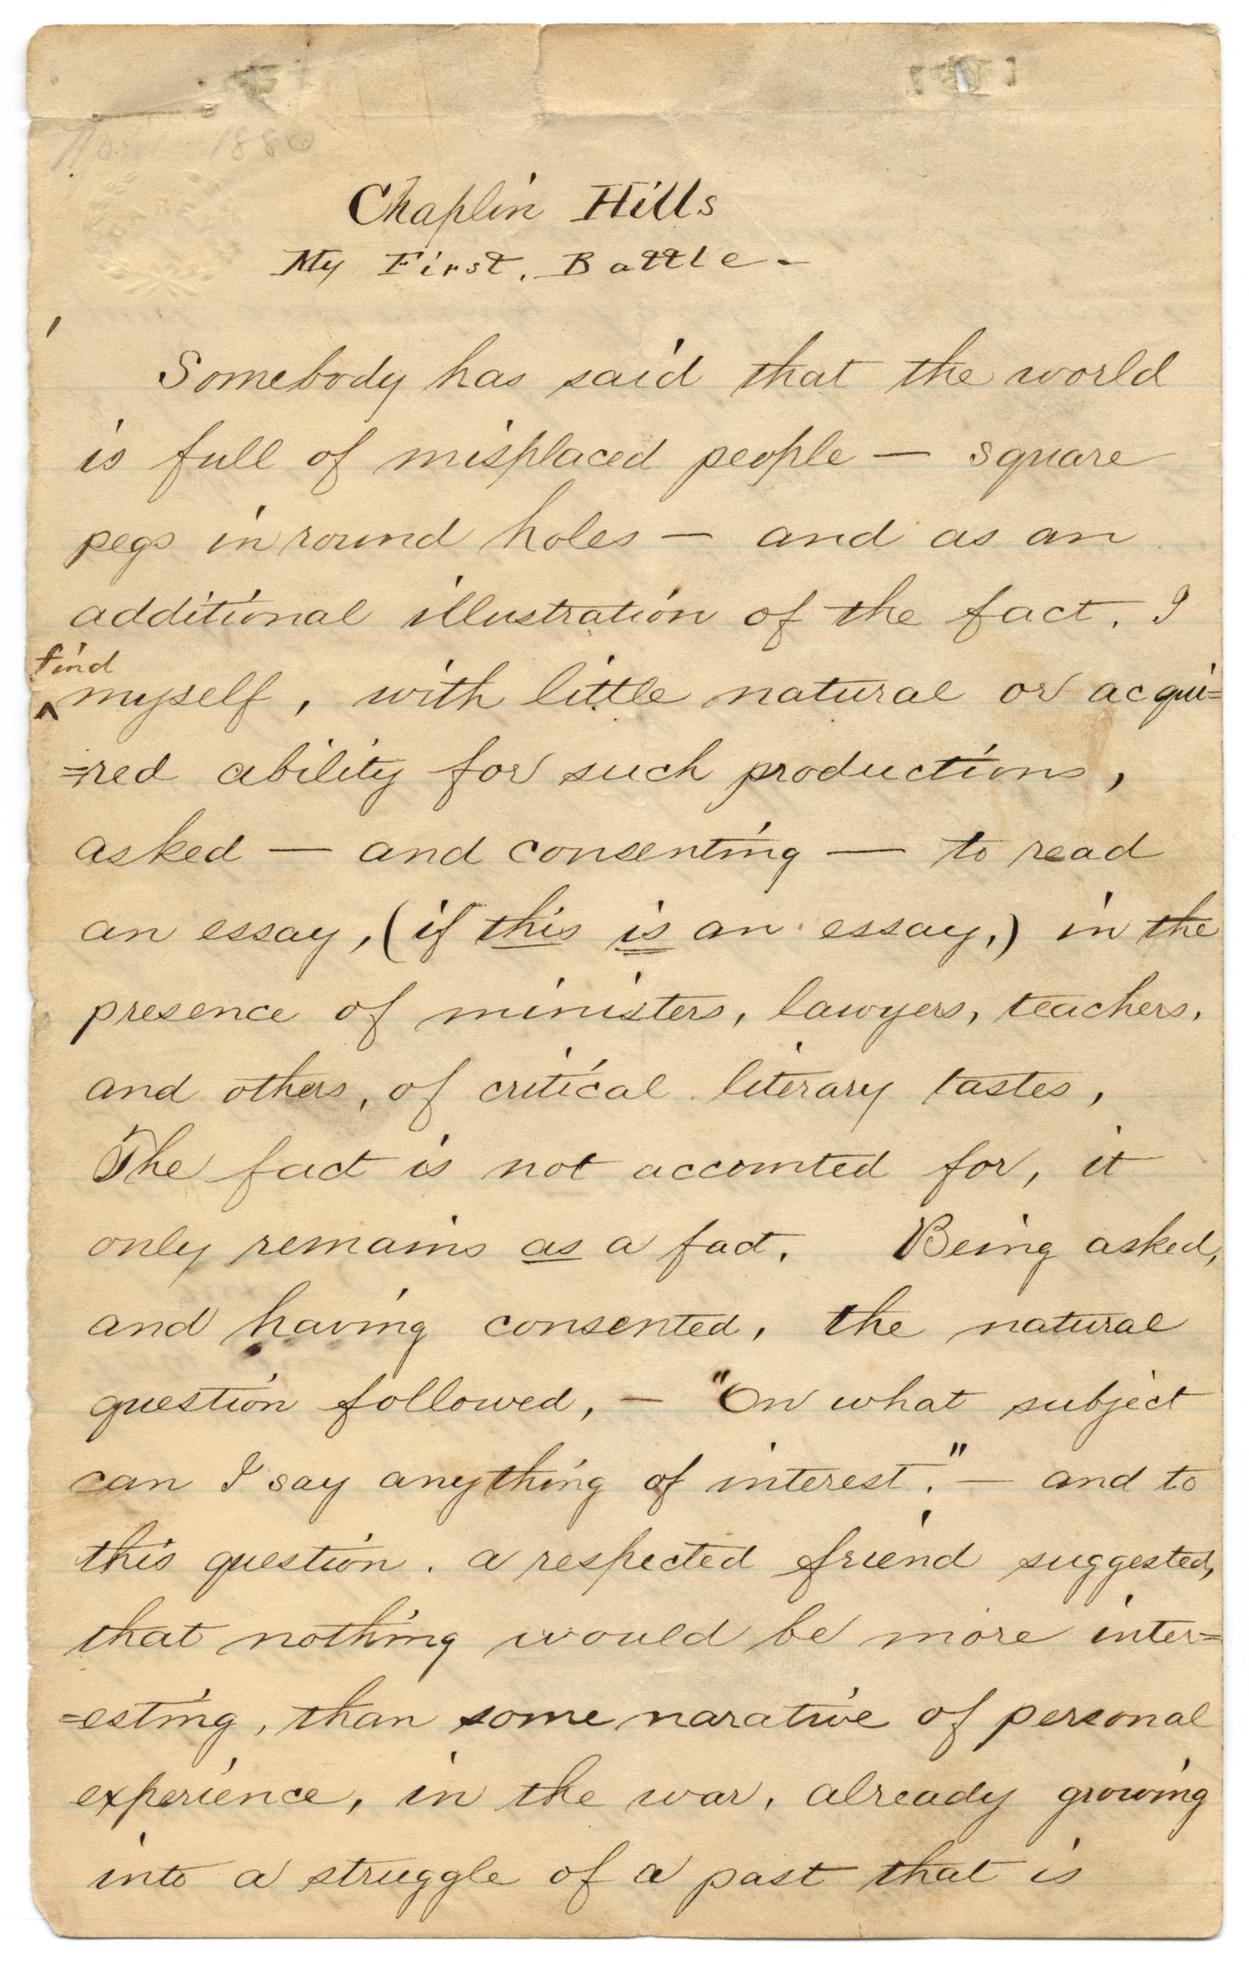 1880
Chaplin Hills
My First. Battle.-
Somebody has said that the world
is full of misplaced people — square
pegs in round holes — and as an
additional illustration of the fact, I
find
^myself, with little natural or acqui=
=red ability for such productions,
asked — and consenting — to read
an essay, (if this is an essay,) in the
presence of ministers, lawyers, teachers,
and others, of critical literary tastes,
The fact is not accounted for, it
only remains as a fact. Being asked,
and having consented, the natural
question followed, — "On what subject
can I say anything of interest." — and to
this question. a respected friend suggested,
that nothing would be more inter=
=esting, than some narative of personal
experience, in the war, already growing
into a struggle of a past that is